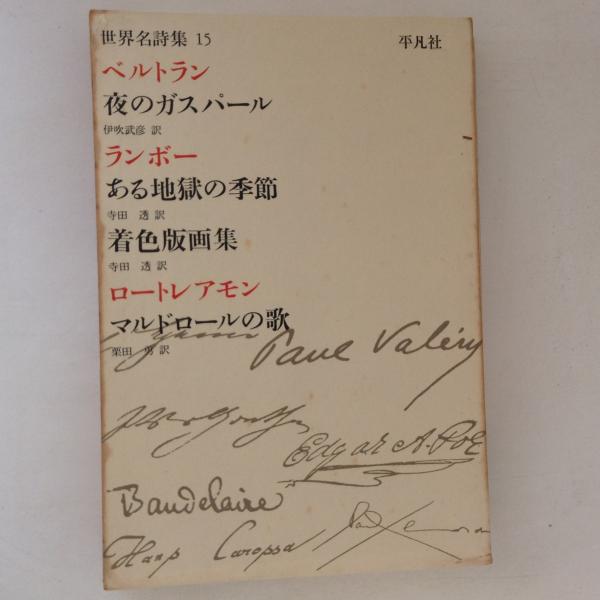 世界名詩集 15
平凡社
ベルトラン
夜のガスパール
伊吹武彦 訳
ランボー
ある地獄の季節
寺田 透 訳
着色版画集
寺田 透 訳
ロートレアモン
マルドロールの歌
栗田 勇 訳
Paul Valéry
Edgar A. Poe
Baudelaire
Hans Carossa